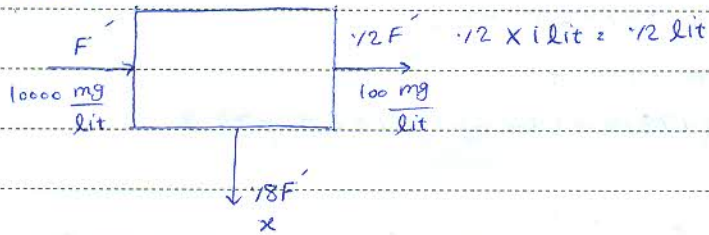 F´
10000 mg/lit
·/2F´ ·/2 × 1 lit = ·/2 lit
100 mg/lit
·/8F´
x